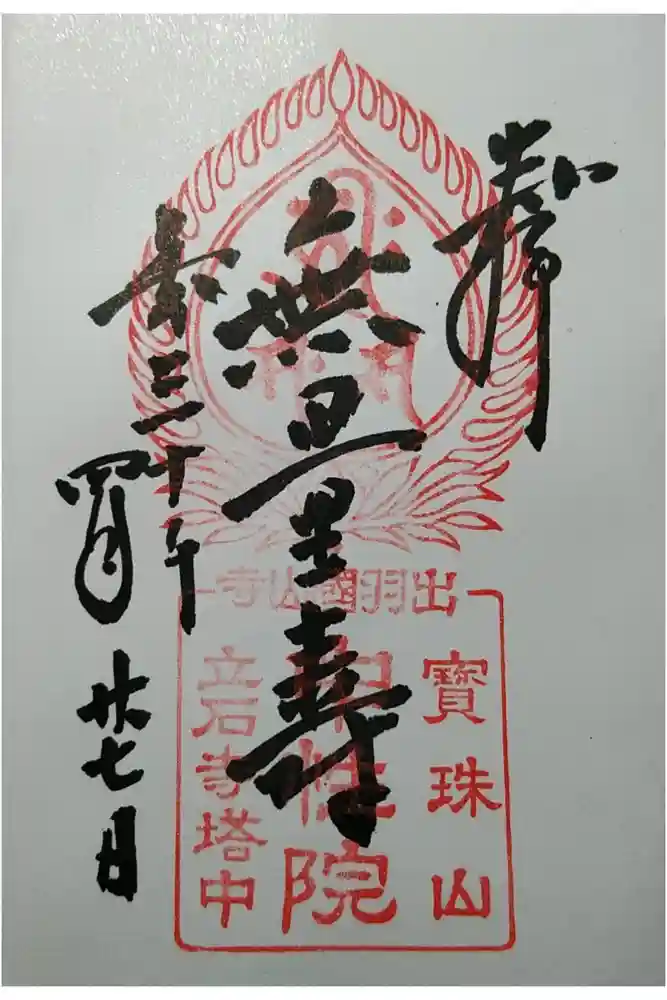 奉拝
無量壽
三十一年
四月
廿七日
出羽國山寺
寶珠山
中性院
立石寺塔中